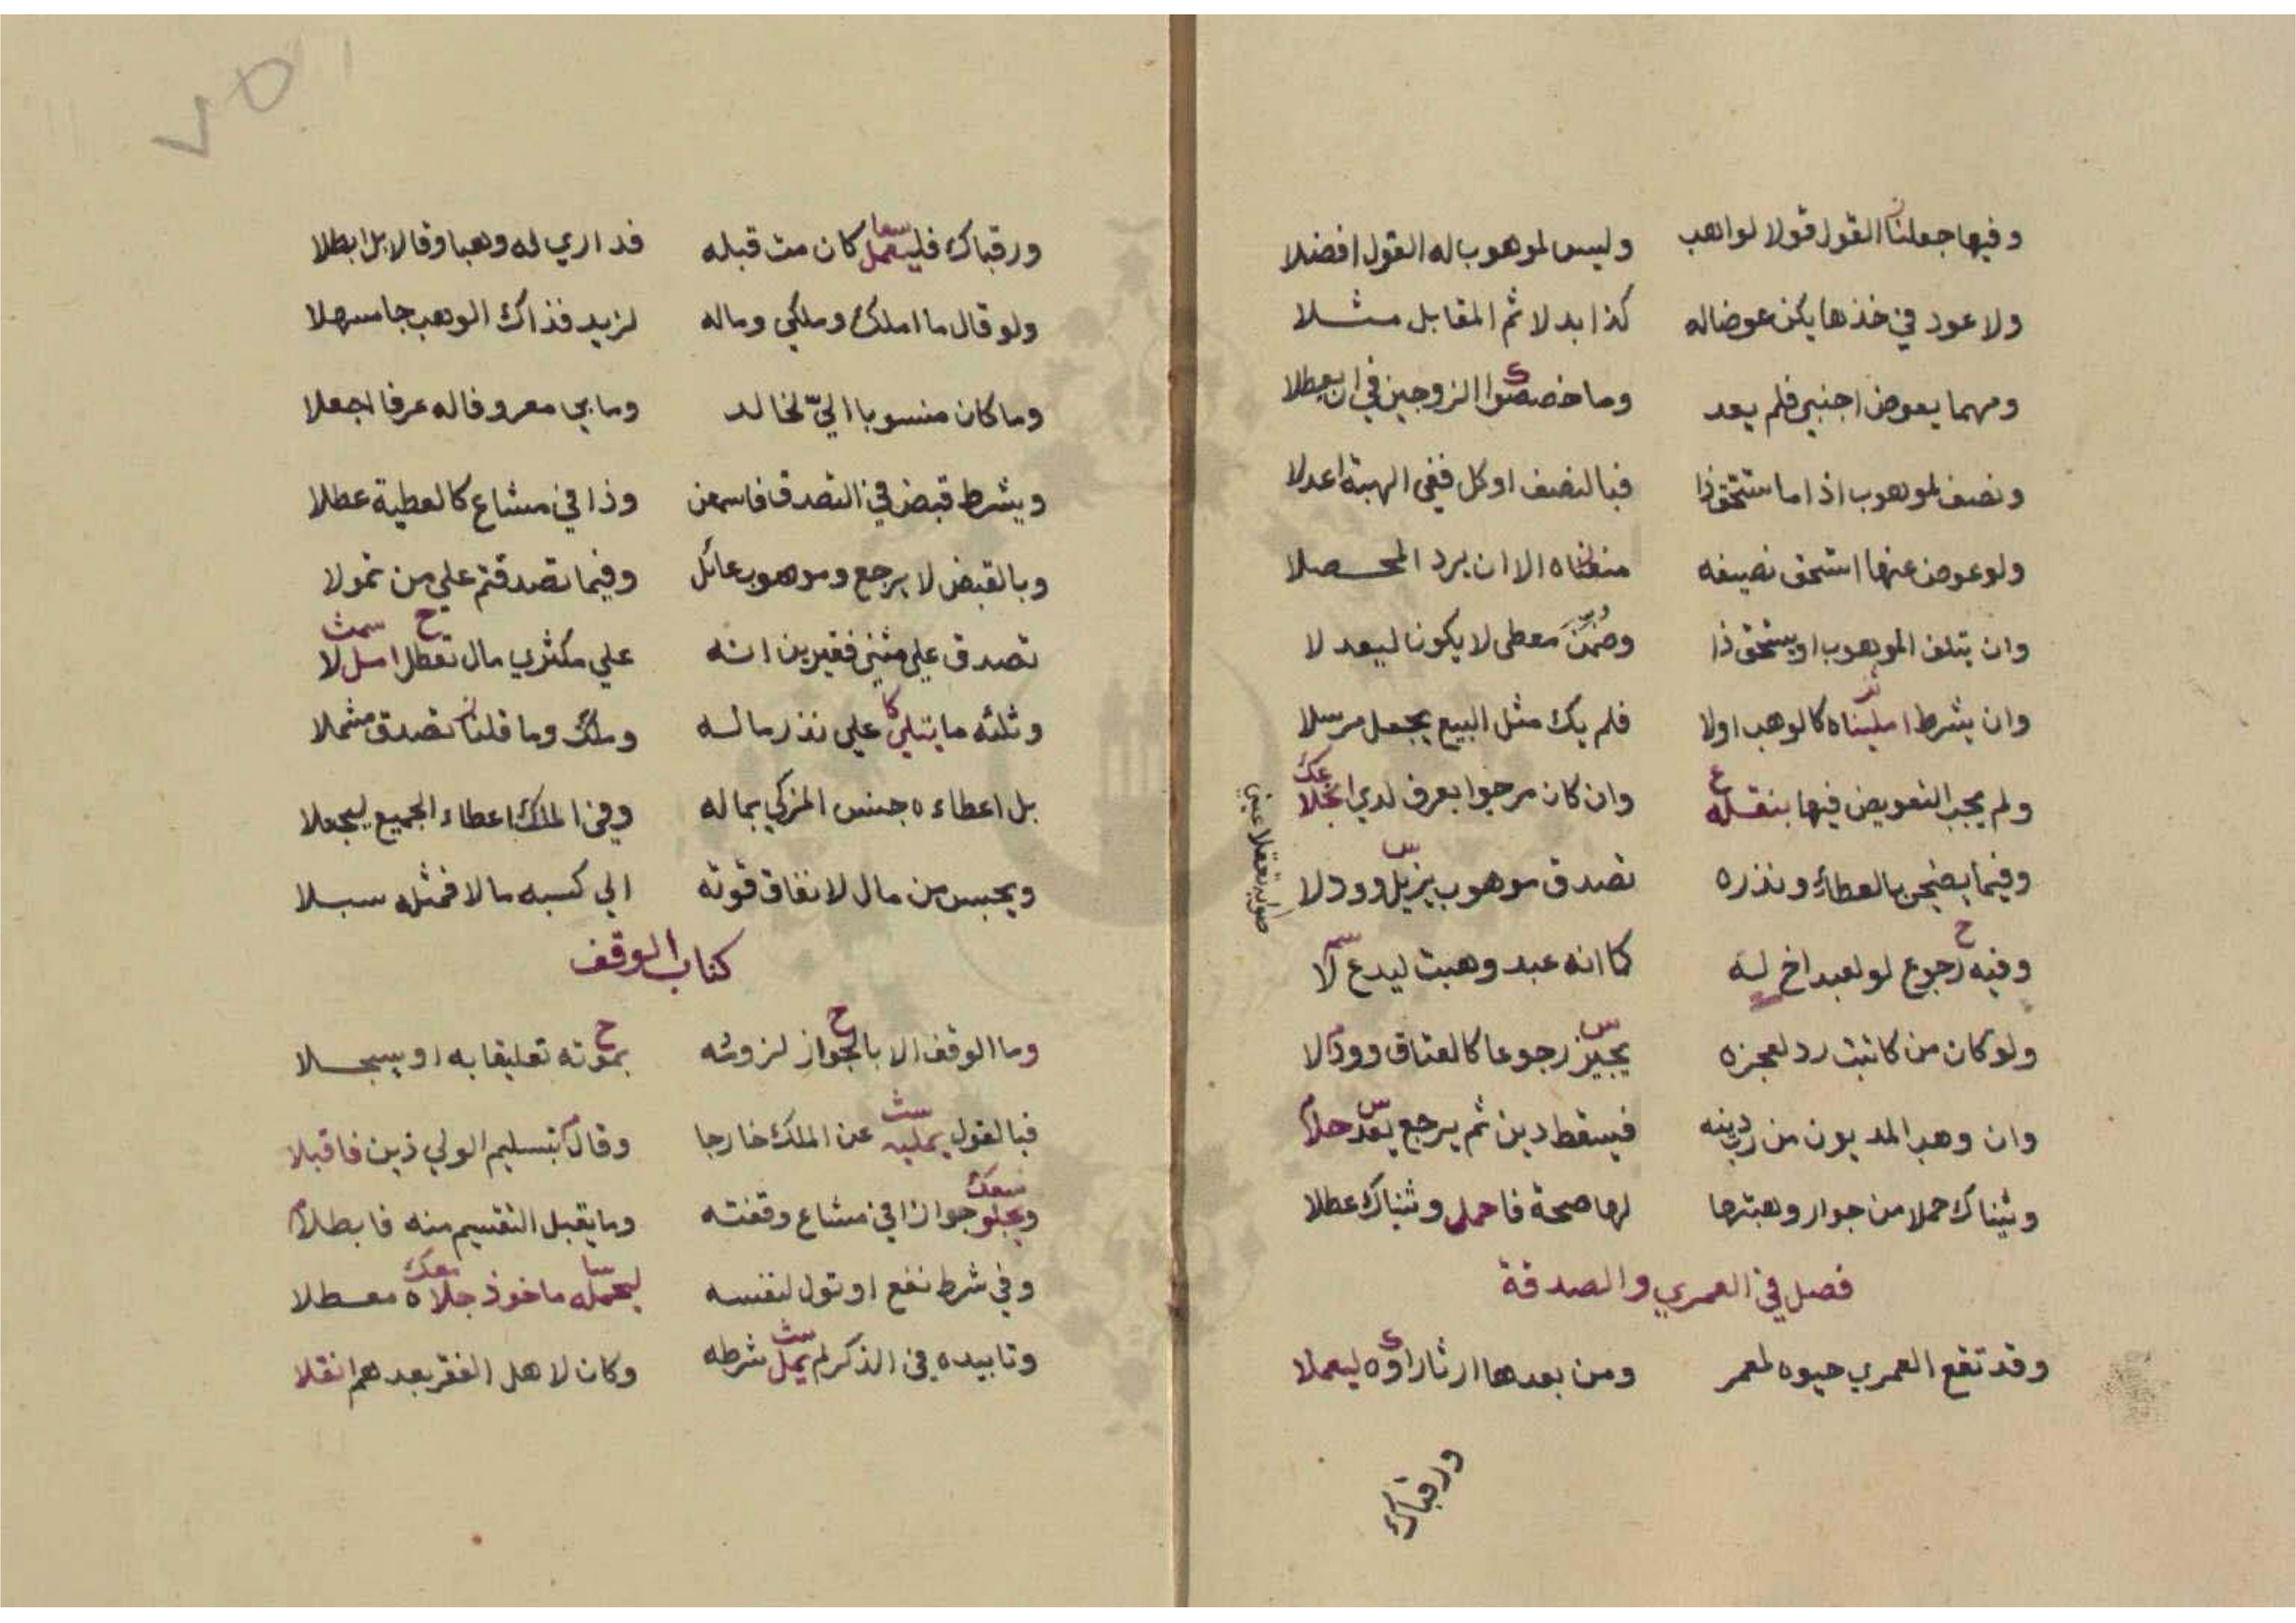 وفيها جعلنا القول قولا لواهب وليس لموهوب له القول افضلا
ولا عود في خذها يكن عوضا له كذا بدلا ثم المقابل مثلا
ومهما يعوض اجنبي فلم يعد وما خصصوا الزوجين في ان يعطلا
ونصف لموهوب اذا ما استحق ذا فبالنصف او كل ففي الهبة اعدلا
ولو عوض عنها استحق نصيفه منعناه الا ان يرد المحصلا
وان يتلف الموهوب او يستحق ذا وضمن معطي لا يكونا ليعدلا
وان بشرط امليناه كالوهب اولا فلم يك مثل البيع يجعل مرسلا
ولم يجب التعويض فيها بنقله وان كان مرجوا بعرف لدي انجلا
وفيما يضحي بالعطاء ونذره تصدق موهوب يزيل وودلا
وفيه رجوع لو لعبد اخ له كما انه عبد وهبت ليدع لا
ولو كان من كاتبت رد لعجزه يجيز رجوعا كالعتاق وودلا
وان وهب المديون من رب دينه فيسقط دين ثم يرجع بعد حلا
وثنياك حملا من جوار وهبتها لها صحة فاحمل وثنياك عطلا
فصل في العمري والصدقة
وقد تقع العمري حيوه لمعمر ومن بعدها ارثا راوه ليعملا
ورقباك
ورقباك فليعمل كان مت قبله فداري له وهبا وقالا بل ابطلا
ولو قال ما املك وملكي وماله لزيد فذاك الوهب جا مسهلا
وما كان منسوبا الي لخالد وما بي معروفا له عرفا اجعلا
ويشرط قبض في التصدق فاسمعن وذا في مشاع كالعطية عطلا
وبالقبض لا يرجع وموهوب عائل وفيما تصدقتم علي من تمولا
تصدق علي مثني فقيرين انه علي مكثري مال تعطل امل لا
وثلثه ما يتلي علي نذر ماله وملك وما قلنا تصدق مثملا
بل اعطاءه جنس المزكي بماله وفي الملك اعطاء الجميع ليجعلا
ويحبس من مال لانفاق قوته الي كسبه مالا فمثله سبلا
كتاب الوقف
وما الوقف الا بالجواز لزومه بموته تعليقا به او يسجلا
فبالقول يمليه عن الملك خارجا وقال بتسليم الولي ذين فاقبلا
ويجلو جوازا في مشاع وقفته وما يقبل التقسيم منه فابطلا
وفي شرط نفع او تول لنفسه ليحمله ماخوذ جلاه معطلا
وتابيده في الذكر لم يمل شرطه وكان لاهل الفقر بعدهم انقلا